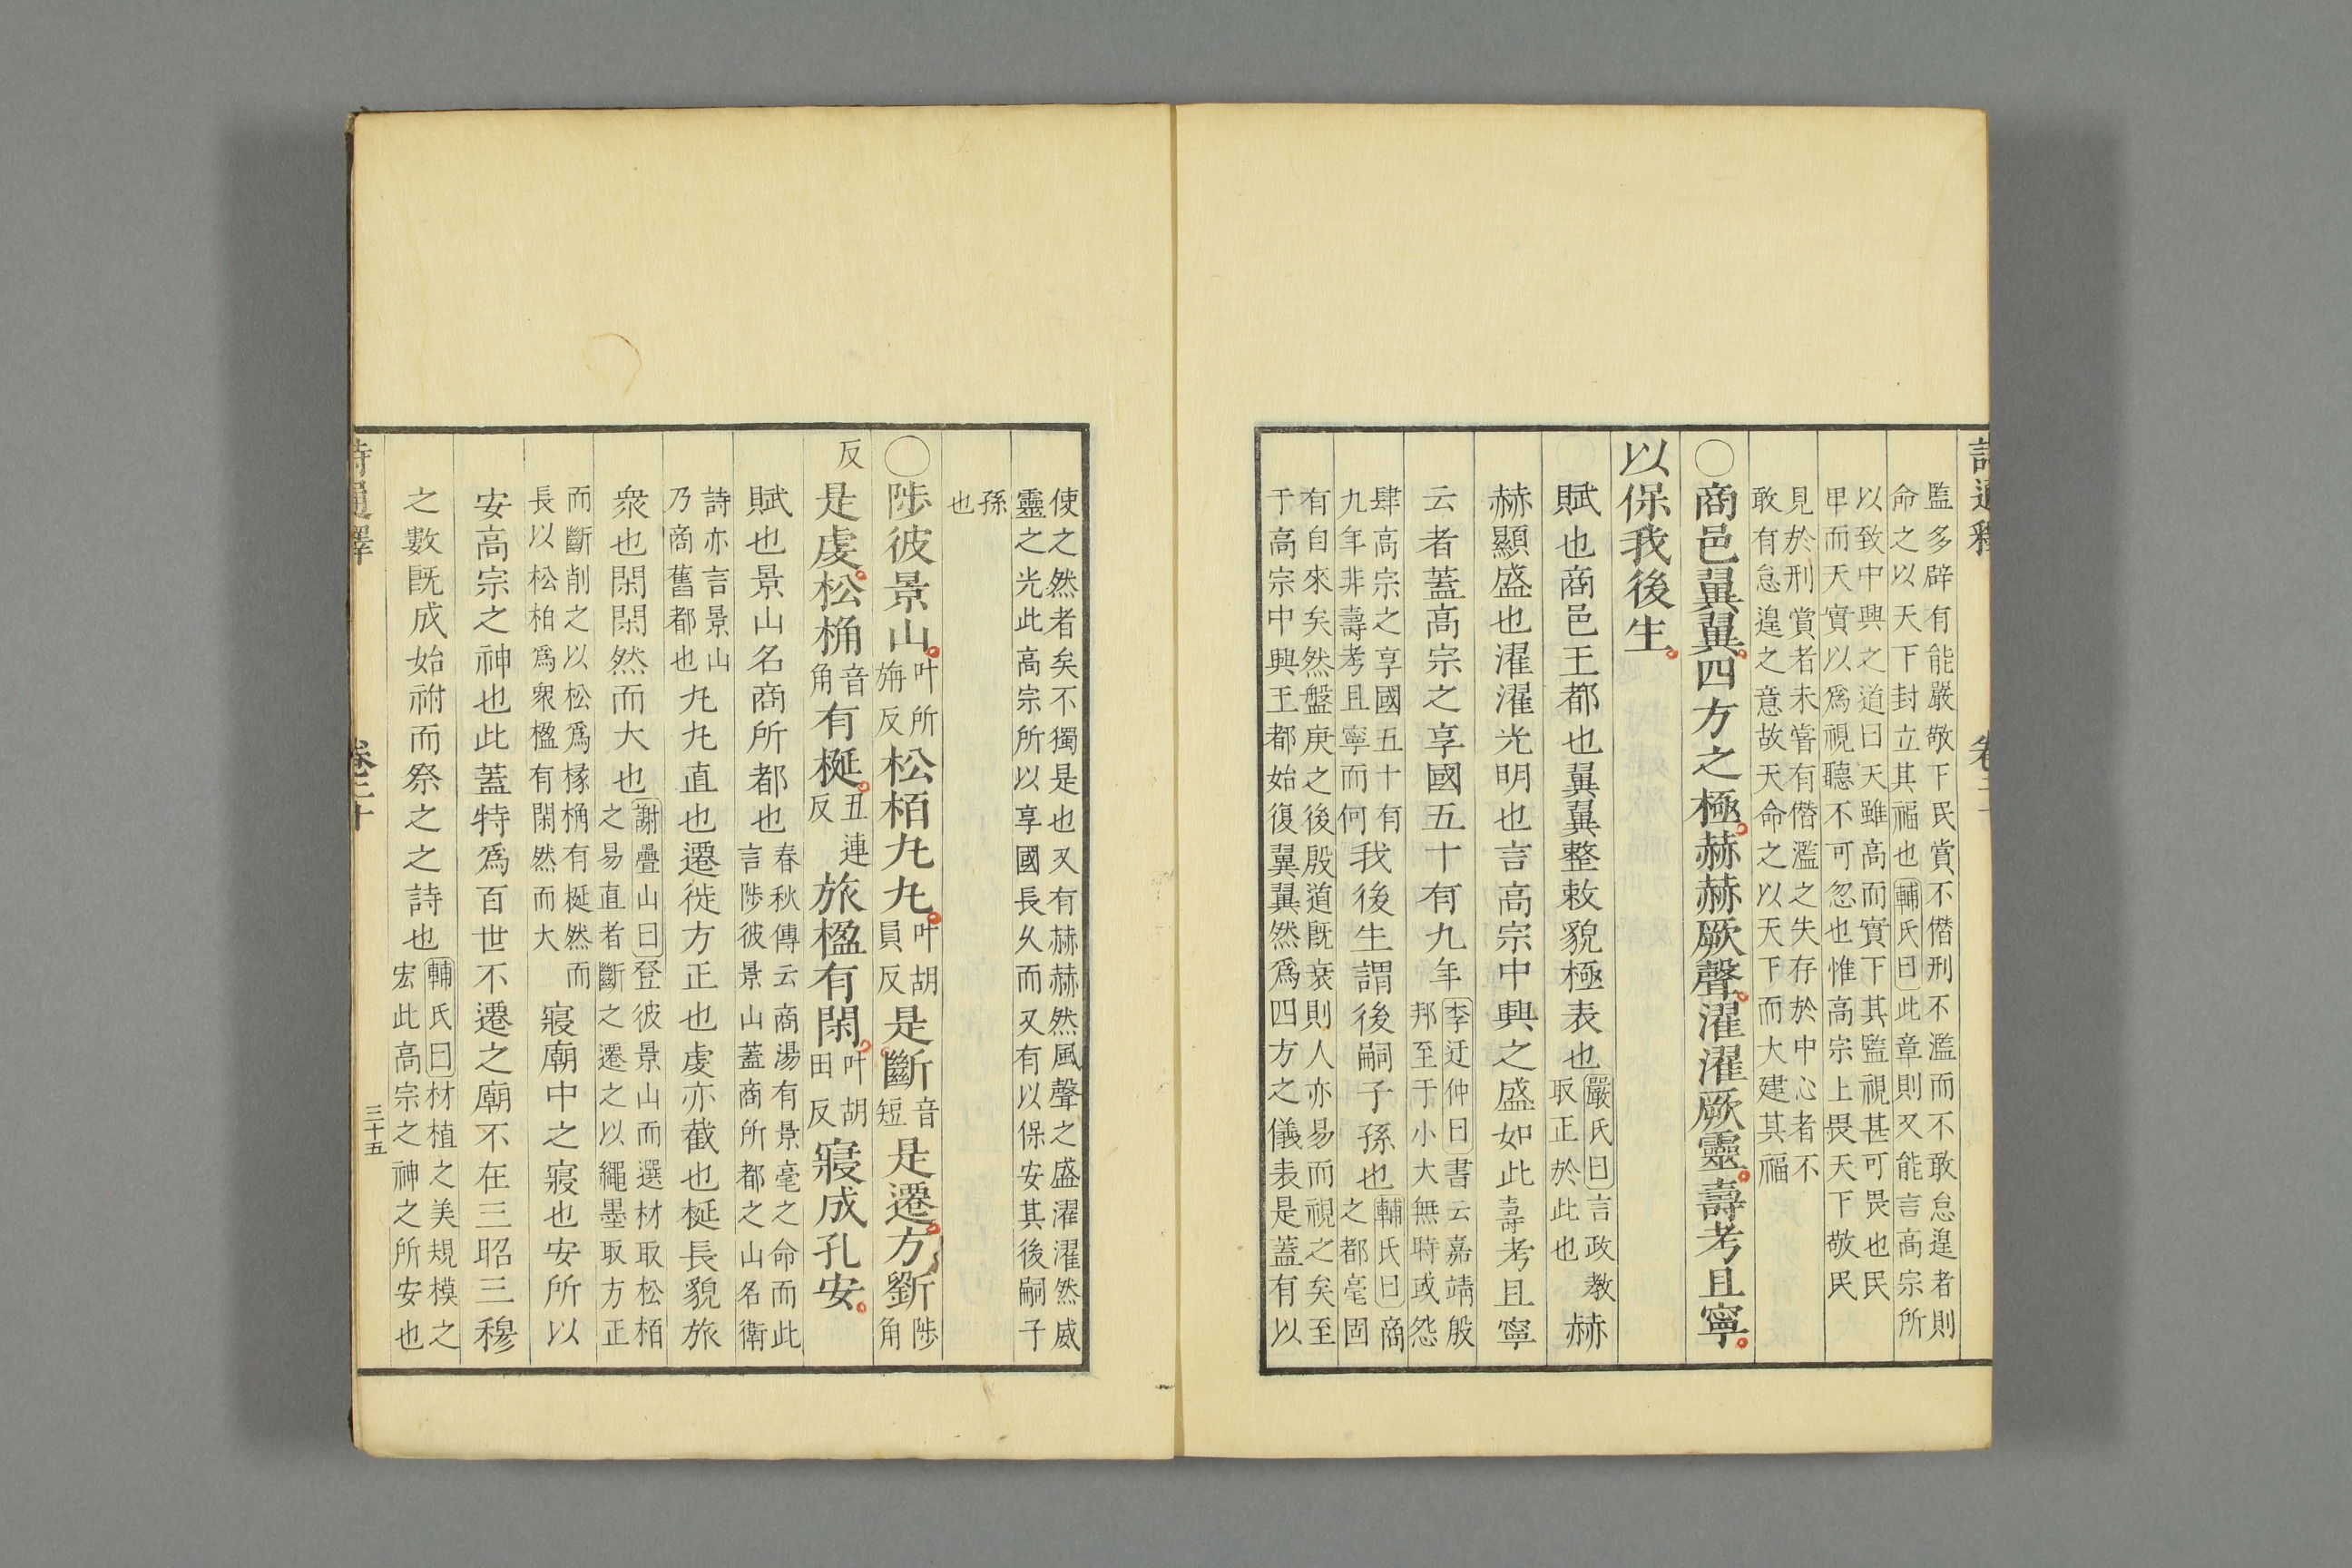 詩通釋　卷二十
監多辟有能嚴敬下民賞不僭刑不濫而不敢怠遑者則
命之以天下封立其福也輔氏曰此章則又能言高宗所
以致中興之道曰天雖高而實下其監視甚可畏也民
甲而天實以為視聽不可忽也惟高宗上畏天下敬民
見於刑賞者未嘗有僭濫之失存於中心者不
敢有怠遑之意故天命之以天下而大建其福
○商邑翼翼四方之極赫赫厥聲濯濯厥靈壽考且寧
以保我後生
賦也商邑王都也翼翼整敕貌極表也嚴氏曰言政教
取正於此也赫
赫顯盛也濯濯光明也言高宗中興之盛如此壽考且寧
云者蓋高宗之享國五十有九年李迂仲曰書云嘉靖殷
邦至于小大無時或怨
肆高宗之享國五十有
九年非壽考且寧而何我後生謂後嗣子孫也輔氏曰商
之都亳固
有自來矣然盤庚之後殷道既衰則人亦易而視之矣至
于高宗中興王都始復翼翼然為四方之儀表是蓋有以
使之然者矣不獨是也又有赫赫然風聲之盛濯濯然威
靈之光此高宗所以享國長久而又有以保安其後嗣子
孫
也
○陟彼景山叶所
旃反松栢丸丸叶胡
員反是斷音
短是遷方斲陟
角
反是虔松桷音
角有梴丑連
反旅楹有閑叶胡
田反寢成孔安
賦也景山名商所都也春秋傳云商湯有景亳之命而此
言陟彼景山蓋商所都之山名衛
詩亦言景山
乃商舊都也丸丸直也遷徙方正也虔亦截也梴長貌旅
衆也閑閑然而大也謝疊山曰登彼景山而選材取松栢
之易直者斷之遷之以繩墨取方正
而斷削之以松為椽桷有梴然而
長以松柏為衆楹有閑然而大寢廟中之寢也安所以
安高宗之神也此蓋特為百世不遷之廟不在三昭三穆
之數既成始祔而祭之之詩也輔氏曰材植之美規模之
宏此高宗之神之所安也
詩通釋　卷二十　三十五